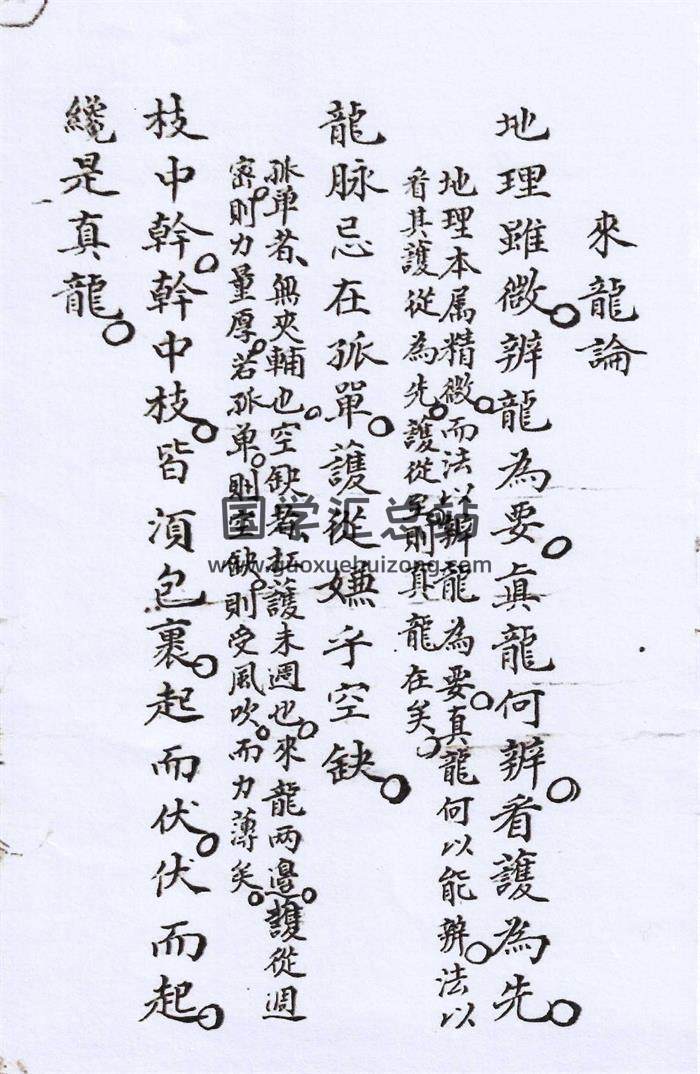 來龍論
地理雖微。辨龍為要。眞龍何辨。看護為先。
地理本属精微。而法以辨龍為要。真龍何以能辨。法以
看其護從為先。護從至則真龍在矣。
龍脉忌在孤單。護從嫌乎空缺。
孤单者、無夾輔也。空缺者、抱護未週也。來龍两邉。護從週
密。則力量厚。若孤单。則空缺。則受風吹。而力薄矣。
枝中幹。幹中枝。皆湏包裹。起而伏。伏而起。
纔是真龍。
国学汇总站
www.guoxuehuizong.com